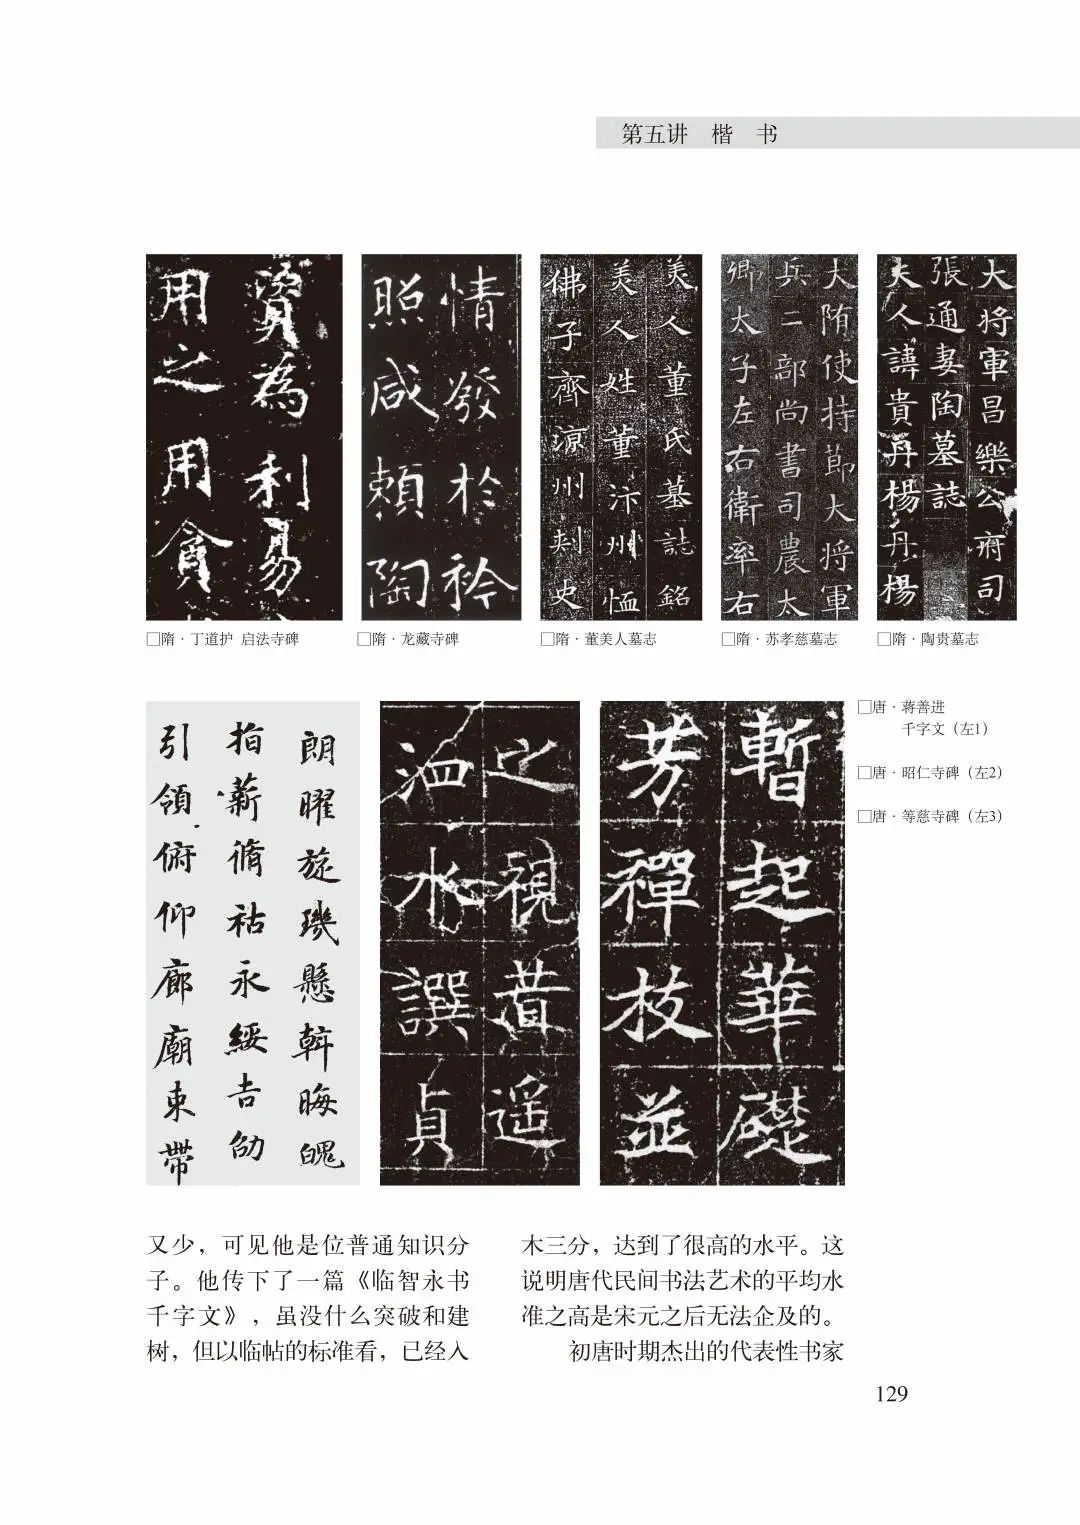 第五讲 楷 书
資為利易
用之用貪
情發於衿
照咸賴陶
美人董氏墓誌銘
美人姓董汴州恤
佛子齊涼州刺史
大隋使持節大將軍
兵二部尚書司農太
卿太子左右衛率右
大將軍昌樂公府司
張通妻陶墓誌
夫人諱貴丹楊丹楊
□隋·丁道护 启法寺碑
□隋·龙藏寺碑
□隋·董美人墓志
□隋·苏孝慈墓志
□隋·陶贵墓志
朗曜旋璣懸斡晦魄
指薪脩祜永綏吉劭
引領俯仰廊廟束帶
之視昔遥
泗水譔貞
暫起華礎
芳禪枝並
□唐·蒋善进
千字文（左1）
□唐·昭仁寺碑（左2）
□唐·等慈寺碑（左3）
又少，可见他是位普通知识分
子。他传下了一篇《临智永书
千字文》，虽没什么突破和建
树，但以临帖的标准看，已经入
木三分，达到了很高的水平。这
说明唐代民间书法艺术的平均水
准之高是宋元之后无法企及的。
初唐时期杰出的代表性书家
129